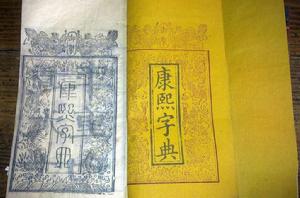 康熙字典
康熙字典